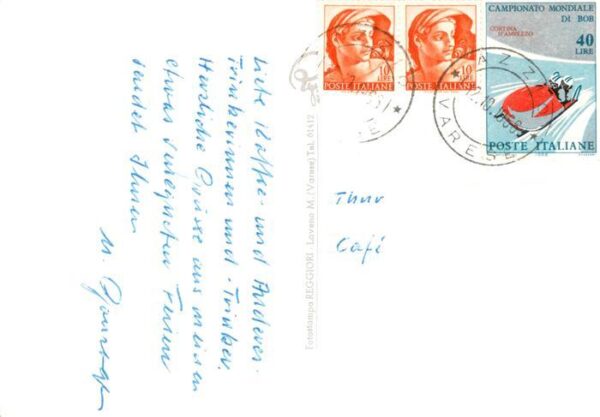 Liebe Kaffee- und Anderes-
Trinkerinnen und -Trinker.
Herzliche Grüsse aus meinen
etwas verregneten Ferien
sendet Ihnen
Thur
Café
10
LIRE
POSTE ITALIANE
10
LIRE
POSTE ITALIANE
CAMPIONATO MONDIALE
DI BOB
CORTINA
D'AMPEZZO
40
LIRE
POSTE ITALIANE
VARESE
Fotostampa REGGIORI - Laveno M. (Varese) Tel. 61412